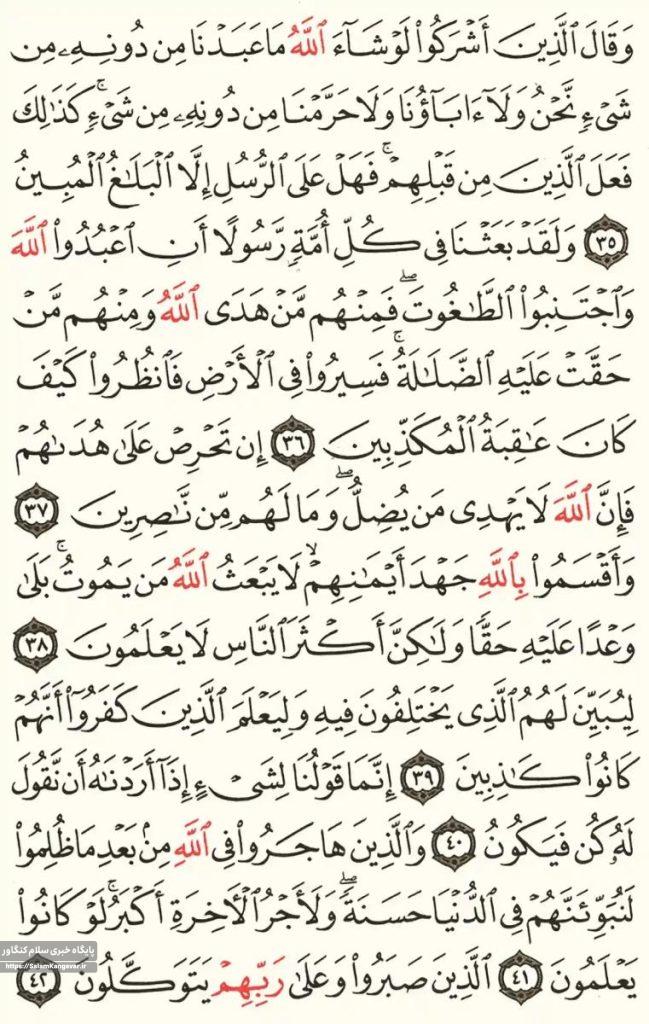 وَقَالَ ٱلَّذِينَ أَشْرَكُوا۟ لَوْ شَآءَ ٱللَّهُ مَا عَبَدْنَا مِن دُونِهِۦ مِن
شَىْءٍ نَّحْنُ وَلَآ ءَابَآؤُنَا وَلَا حَرَّمْنَا مِن دُونِهِۦ مِن شَىْءٍ ۚ كَذَٰلِكَ
فَعَلَ ٱلَّذِينَ مِن قَبْلِهِمْ ۚ فَهَلْ عَلَى ٱلرُّسُلِ إِلَّا ٱلْبَلَٰغُ ٱلْمُبِينُ
٣٥ وَلَقَدْ بَعَثْنَا فِى كُلِّ أُمَّةٍ رَّسُولًا أَنِ ٱعْبُدُوا۟ ٱللَّهَ
وَٱجْتَنِبُوا۟ ٱلطَّٰغُوتَ ۖ فَمِنْهُم مَّنْ هَدَى ٱللَّهُ وَمِنْهُم مَّنْ
حَقَّتْ عَلَيْهِ ٱلضَّلَٰلَةُ ۚ فَسِيرُوا۟ فِى ٱلْأَرْضِ فَٱنظُرُوا۟ كَيْفَ
كَانَ عَٰقِبَةُ ٱلْمُكَذِّبِينَ ٣٦ إِن تَحْرِصْ عَلَىٰ هُدَىٰهُمْ
فَإِنَّ ٱللَّهَ لَا يَهْدِى مَن يُضِلُّ ۖ وَمَا لَهُم مِّن نَّٰصِرِينَ ٣٧
وَأَقْسَمُوا۟ بِٱللَّهِ جَهْدَ أَيْمَٰنِهِمْ ۙ لَا يَبْعَثُ ٱللَّهُ مَن يَمُوتُ ۚ بَلَىٰ
وَعْدًا عَلَيْهِ حَقًّا وَلَٰكِنَّ أَكْثَرَ ٱلنَّاسِ لَا يَعْلَمُونَ ٣٨
لِيُبَيِّنَ لَهُمُ ٱلَّذِى يَخْتَلِفُونَ فِيهِ وَلِيَعْلَمَ ٱلَّذِينَ كَفَرُوٓا۟ أَنَّهُمْ
كَانُوا۟ كَٰذِبِينَ ٣٩ إِنَّمَا قَوْلُنَا لِشَىْءٍ إِذَآ أَرَدْنَٰهُ أَن نَّقُولَ
لَهُۥ كُن فَيَكُونُ ٤٠ وَٱلَّذِينَ هَاجَرُوا۟ فِى ٱللَّهِ مِنۢ بَعْدِ مَا ظُلِمُوا۟
لَنُبَوِّئَنَّهُمْ فِى ٱلدُّنْيَا حَسَنَةً ۖ وَلَأَجْرُ ٱلْءَاخِرَةِ أَكْبَرُ ۚ لَوْ كَانُوا۟
يَعْلَمُونَ ٤١ ٱلَّذِينَ صَبَرُوا۟ وَعَلَىٰ رَبِّهِمْ يَتَوَكَّلُونَ ٤٢
پایگاه خبری سلام کنگاور
https://SalamKangavar.ir